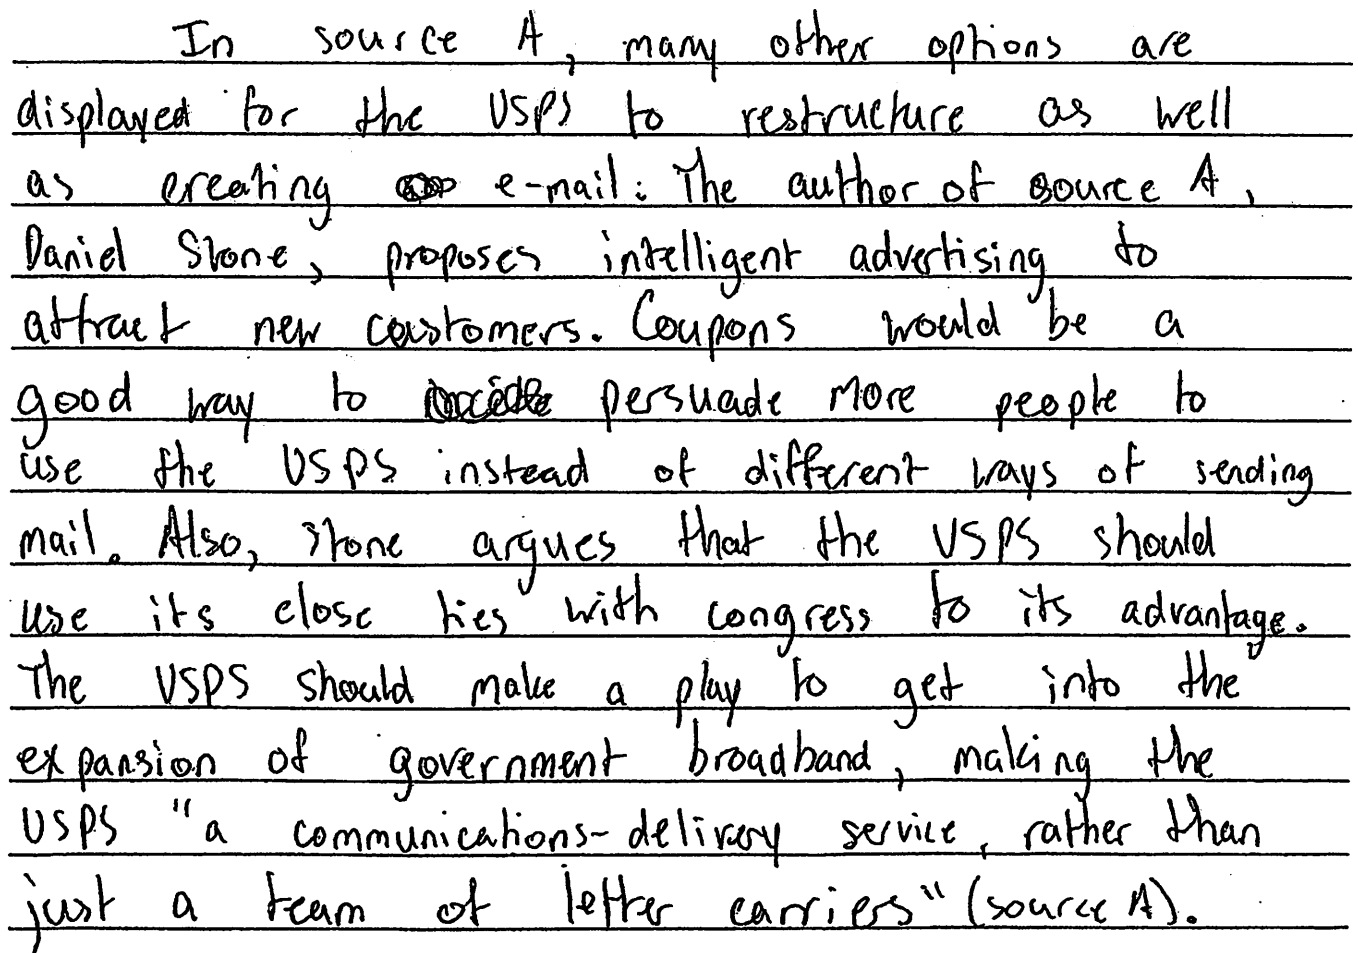 In source A, many other options are
displayed for the USPS to restructure as well
as creating e-mail. The author of source A,
Daniel Stone, proposes intelligent advertising to
attract new customers. Coupons would be a
good way to persuade more people to
use the USPS instead of different ways of sending
mail. Also, Stone argues that the USPS should
use its close ties with congress to its advantage.
The USPS should make a play to get into the
expansion of government broadband, making the
USPS "a communications-delivery service, rather than
just a team of letter carriers" (source A).